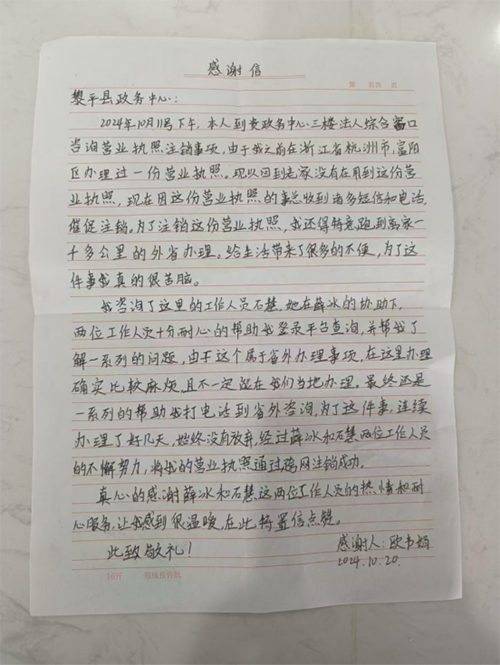 感谢信
第 页 共 页
黎平县政务中心:
2024年10月11号下午，本人到贵政务中心三楼法人综合窗口
咨询营业执照注销事项，由于我之前在浙江省杭州市，富阳
区办理过一份营业执照。现以回到老家没有在用到这份营
业执照，现在因这份营业执照的事总收到诸多短信和电话，
催促注销。为了注销这份营业执照，我还得特意跑到离家一
千多公里的外省办理。给生活带来了很多的不便，为了这
件事我真的很苦脑。
我咨询了这里的工作人员石慧，她在薛冰的协助下，
两位工作人员十分耐心的帮助我登录平台查询，并帮我了
解一系列的问题，由于这个属于省外办理事项，在这里办理
确实比较麻烦且不一定能在我们当地办理。最终还是
一系列的帮助我打电话到省外咨询，为了这件事，连续
办理了好几天，始终没有放弃，经过薛冰和石慧两位工作人员
的不懈努力，将我的营业执照通过跨网注销成功。
真心的感谢薛冰和石慧这两位工作人员的热情和耐
心服务，让我感到很温暖，在此特置信点赞。
此致敬礼！
感谢人：欧韦
2024.10.20.
16开